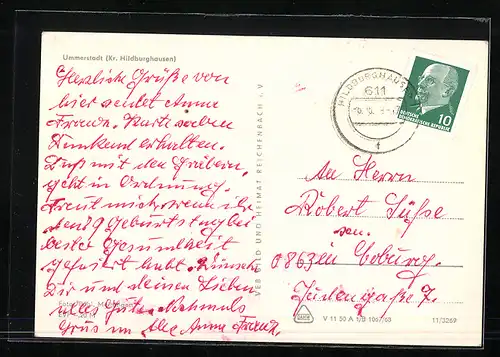 Ummerstadt (Kr. Hildburghausen)
Herzliche Grüße von
hier sendet Anna
Franz. Karte haben
dankend erhalten.
mit den Gräbern,
geht in Ordnung.
Freut mich, wenn ihr
den 79 Geburtstag bei
bester Gesundheit
gefeiert habt. Wünsche
Dir und deinen Lieben
alles Gute. Nochmals
Grus im Alle Anna Franz
VEB BILD UND HEIMAT REICHENBACH i. V.
HILDBURGHAUS
611
f
DEUTSCHE
DEMOKRATISCHE REPUBLIK
10
An Herrn
Robert Süße
sen.
8631 Coburg.
Judengaße 7.
V 11 50 A 1/B 1067/68
11/3269